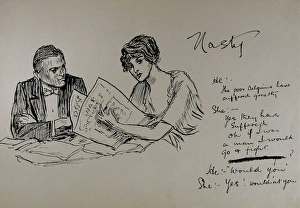 Nasty
He:-
The poor Belgians have
suffered greatly
She:-
Yes they have
suffered
oh if I was
a man I would
go & fight
?
He:- "Would you"
She:- Yes! wouldn't you